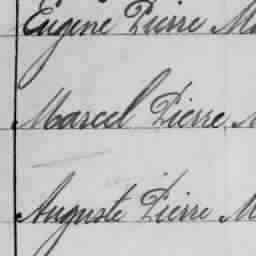 Eugène Pierre
Marcel Pierre
Auguste Pierre